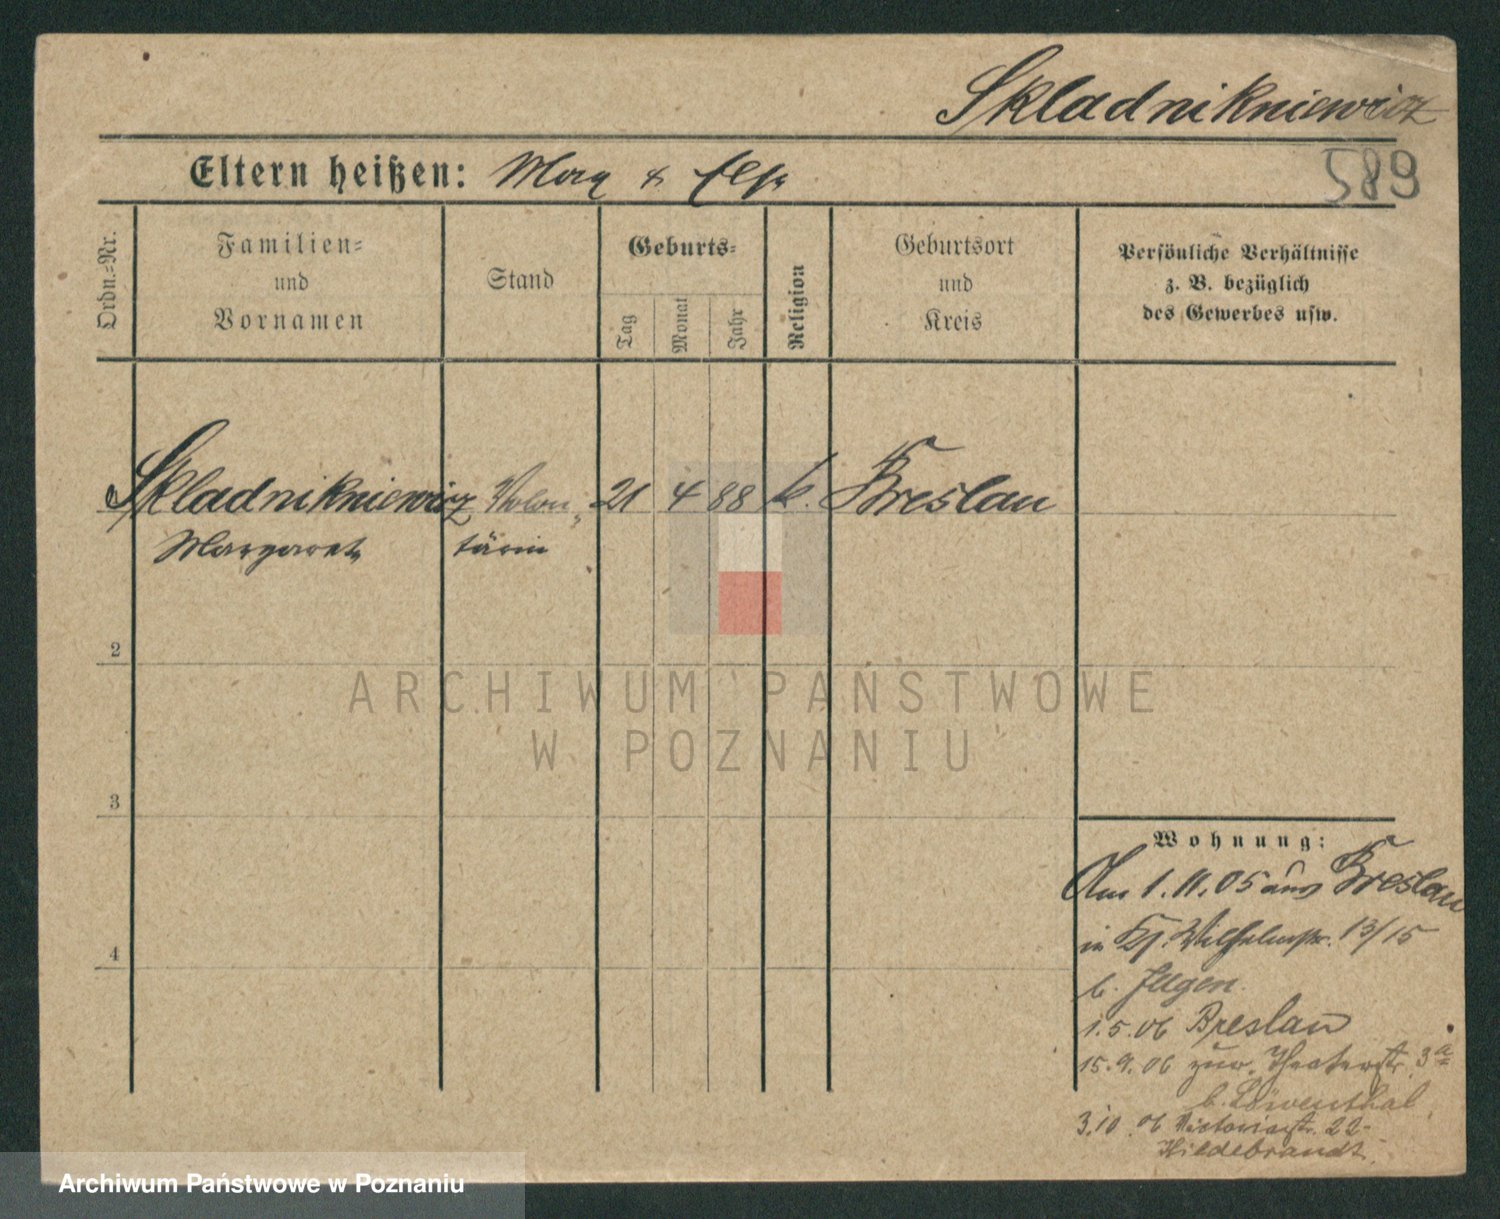 Skladnikniewicz
Eltern heißen: Max & Else
589
Ordn.=Nr.
Familien=
und
Vornamen
Stand
Geburts=
Tag
Monat
Jahr
Religion
Geburtsort
und
Kreis
Persönliche Verhältnisse
z. B. bezüglich
des Gewerbes usw.
Skladnikniewicz Volon= 21 4 88 k. Breslau
Margarete tärin
2
3
4
ARCHIWUM PAŃSTWOWE
W POZNANIU
Wohnung:
Am 1.11.05 aus Breslau
in Wilhelmstr. 13/15
b. Jllgen.
1.5.06 Breslau
15.9.06 zur. Theaterstr. 3a
b. Löwenthal.
3.10.06 Victoriastr. 22
Hildebrandt.
Archiwum Państwowe w Poznaniu